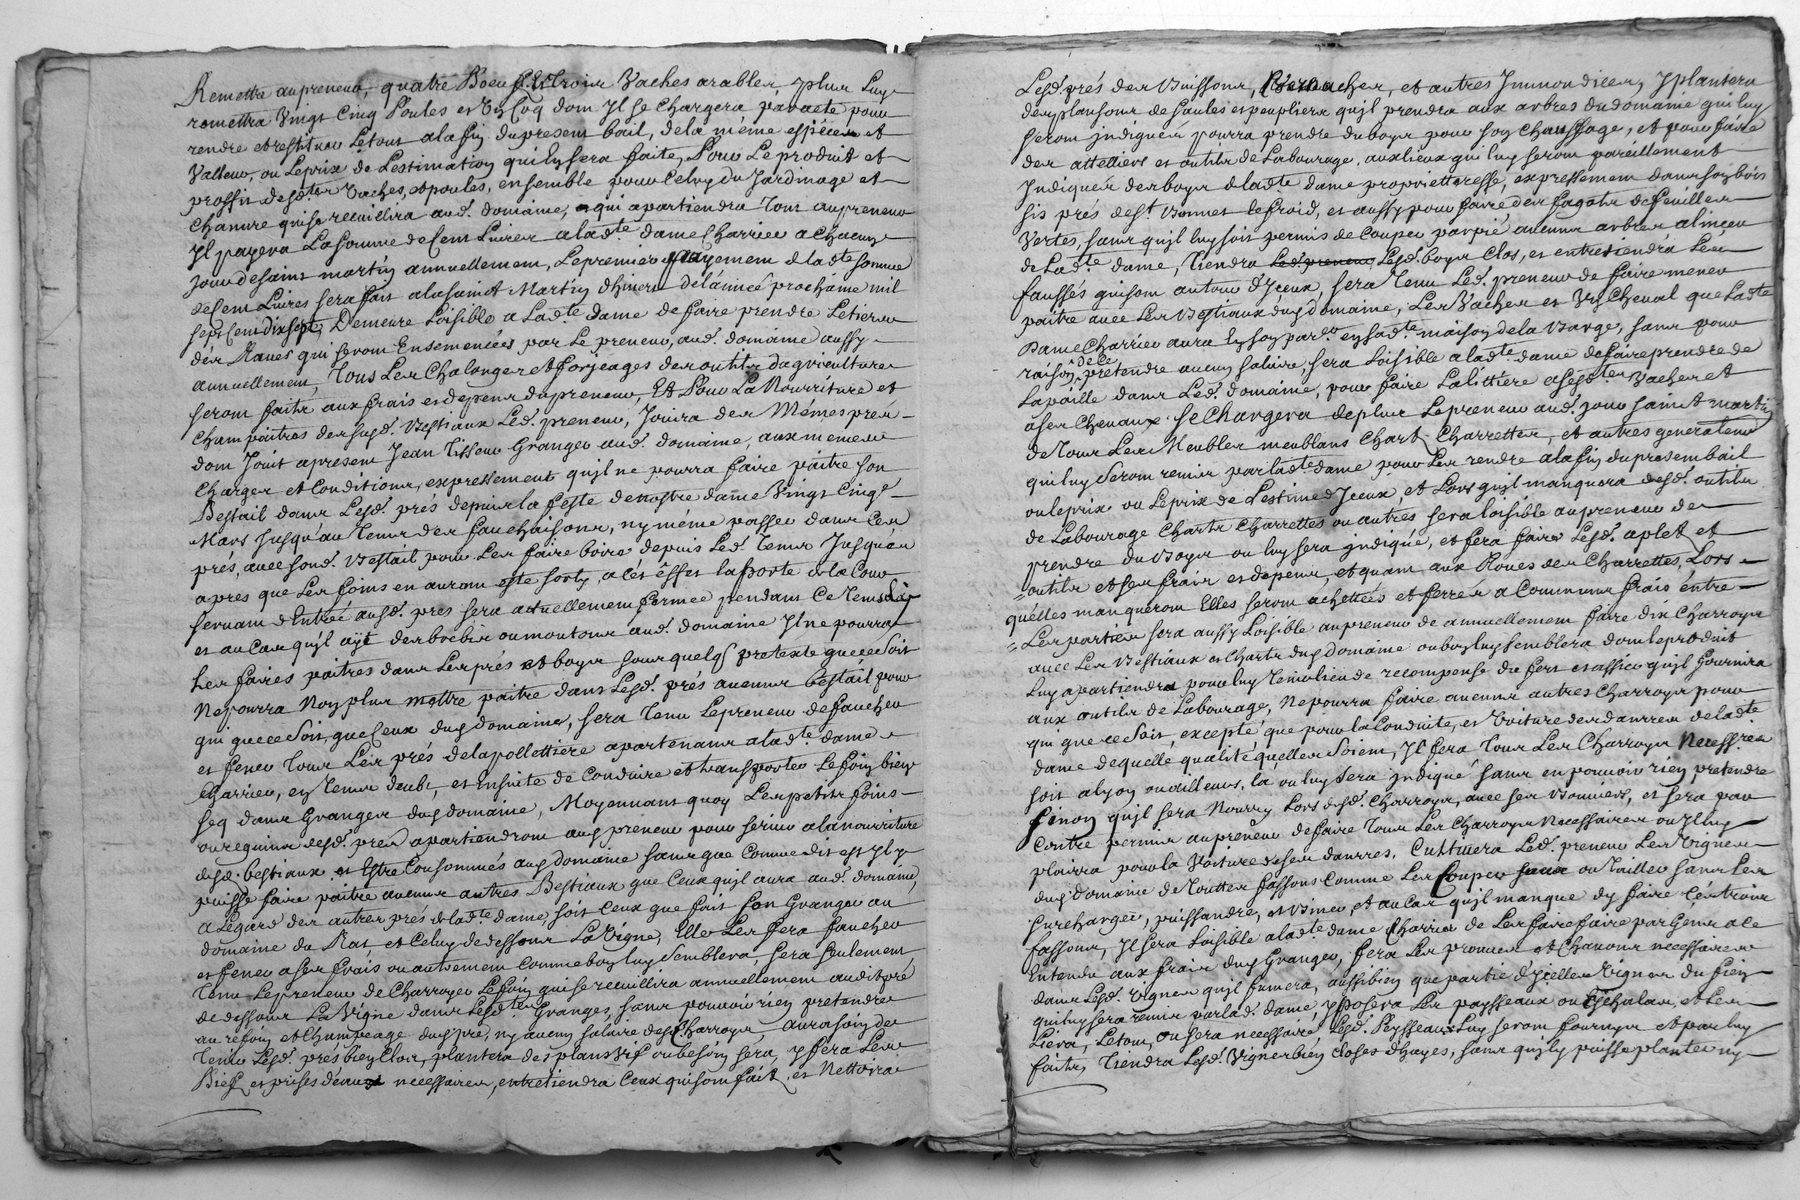 Remettra au preneur, quatre Boeufs et Trois Vaches arables, Jplus Luy
remettra Vingt Cinq Poules et Un Coq dont Jl se Chargera par acte pour
rendre et restituer Le tout a la fin du present bail, de la méme espéce et
Valleur, ou Le prix de L'estimation qui En sera faite, Pour Le produit et
proffit desd. tes Vaches, et poules, ensemble pour Celuy du Jardinage et
Chanvre qui se recuillira aud. domaine, qui apartiendra Tout au preneur
Jl payera La Somme de Cent Livres a lad.te dame Charrier a Chacun
Jour de saint martin annuellement, Le premier payement de lad.te somme
de Cent Livres sera fait a la saint Martin d'hiver de l'année prochaine mil
sept Cent dix sept, Demeure Loisible a Lad.te dame de faire prendre Le tiers
des Raves qui seront Ensemencées par Le preneur, aud. domaine aussy
annuellement, Tous Les Chalonges et forjeages des outils d'agriculture
seront faits aux frais et depens du preneur, Et Pour La Nourriture et
Champaitres desusd. Bestiaux Led. preneur, Jouira des Mémes pres
dont Jouit apresent Jean Tisseur Granger aud. domaine, aux memes
Charges et Conditions, expressement qu'jl ne pourra faire paitre son
Bestail dans Lesd. prés depuis la feste de nostre dame Vingt Cinq.e
Mars Jusqu'au Tems des fauchaisons, ny méme passer dans Ces
prés, avec sond. Bestail pour Les faire boire depuis Led. Tems Jusqu'au
apres que Les foins en auront esté sorty, a cés éffet la porte de la Cour
servant d'Entrée ausd. pres sera actuellement fermée pendant Ce Tems La
et au Cas qu'jl ayt des brebis ou moutons aud. domaine Jl ne pourra
Les faires paitres dans Les prés et boys sous quelq. pretexte que ce soit
Ne pourra Non plus mettre paitre dans Lesd. prés aucuns béstail pour
qui que ce soit, que Ceux dud. domaine, sera Tenu Le preneur de faucher
et fener Tous Les prés de la pollettiere apartenans a lad.te dame
Charrier, en Tems deub, et Ensuite de Conduire et transporter Le foin bien
seq dans Granges dud. domaine, Moyennant quoy Les petits foins
ou reguins desd. pres apartiendront aud. preneur pour servir a la nourriture
desd. bestiaux et Estre Consommés aud. domaine sans que Comme dit est Jl y
puisse faire paitre aucuns autres Bestiaux que Ceux qu'jl aura aud. domaine,
a L'egard des autres prés de lad.te dame, soit Ceux que fait son Granger au
domaine du Ras, et Celuy de dessous La Vigne, Elle Les fera faucher
et fener a ses frais ou autrement Comme bon luy semblera, sera seulement
Tenu Le preneur de Charroyer Le foin qui se recuillira annuellement audit pré
de dessous La Vigne dans Lesd.tes Granges, sans pouvoir rien pretendre
au refoin et Champeage dud. pré, ny aucun salaire desd. Charroys, aura soin de
Tenir Lesd. prés bien Clos, plantera des plans vif ou besoin sera, y fera Les
Bief et prises d'eaux necessaires, entretiendra Ceux qui sont fait, et Nettoira
Lesd. prés des Buissons, et autres Jmmondices, Jplantera
des plansons de saules et peupliers qu'jl prendra aux arbres du domaine qui luy
seront jndiqués pourra prendre du boys pour son Chauffage, et pour faire
des attelliers et outils de Labourage, aux lieux qui luy seront pareillement
Jndiqués des boys de lad.te dame proprietteresse, expressement dans son bois
sis prés de S.t Bonnet le froid, et aussy pour faire des fagots de feuilles
Vertes, sans qu'jl luy soit permis de Couper par pié aucuns arbres a l'insçu
de Lad.te dame, Tiendra Led. preneur Lesd. boys Clos, et entretiendra Les
faussés qui sont autour d'Jceux, sera Tenu Led. preneur de faire mener
paitre avec Les Bestiaux dud. domaine, Les Vaches et Un Cheval que Lad.te
Dame Charrier aura en sad.te maison de la Barge, sans pour
de ce
raison pretendre aucun salaire, sera Loisible a lad.te dame de faire prendre de
La paille dans Led. domaine, pour faire La littiere a sesd.tes Vaches et
a ses Chevaux. se Chargera de plus Le preneur aud. jour saint martin
de Tous Les Meubles meublans Chart, Charrettes, et autres generalement
qui luy seront remis par lad.te dame pour Les rendre a la fin du present bail
ou le prix ou Le prix de L'estime d'Jceux et Lors qu'jl manquera desd. outils
de Labourage Charts Charrettes ou autres sera loisible au preneur de
prendre du Boys ou luy sera jndiqué, et fera faire Lesd. aplet et
outils et ses frais et depens, et quant aux Roues des Charrettes, Lors
qu'elles manqueront Elles seront achettées et ferrés a Communs frais entre
Les parties sera aussy Loisible au preneur de annuellement faire dix Charroys
avec Les Bestiaux et Charts dud. domaine ou bon luy semblera dont le produit
Luy apartiendra pour luy Tenir lieu de recompense du fert et assier qu'jl fournira
aux outils de Labourage, Ne pourra faire aucuns autres Charroys pour
qui que ce soit, excepté que pour la Conduite, et Voiture des danrées de lad.te
dame de quelle qualité qu'elles soient, Jl fera Tous Les Charroys Necess.res
soit a lyon ou ailleurs, la ou luy sera jndiqué sans en pouvoir rien pretendre
sinon qu'jl sera Nourry Lors desd. Charroys, avec ses Bouviers, et sera par
Contre permis au preneur de faire Tous Les Charroys Necessaires ou Jl luy
plaira pour la Voiture de ses danrées. Cultivera Led. preneur Les Vignes
dud. domaine de Touttes fassons Comme Les Couper ou Tailler sans Les
surcharger, puissandre, et biner, et au Cas qu'jl manque d'y faire Cés trois
fassons, Jl sera Loisible a lad.te dame Charrier de Les faire faire par Gens a ce
Entendu aux frais dud. Granger, fera Les provins et Chavons necessaires
dans Lesd. Vignes qu'jl fumera, aussi bien que partie d'Jcelles Vignes du fien
qui luy sera remis par lad. dame, y posera Les paysseaux ou Echalas, et Les
Liera, Le tout ou sera necessaire Lesd. Paysseaux Luy seront fournys et par luy
faits, Tiendra Lesd. Vignes bién closes d'hayes, sans qu'jl y puisse planter ny